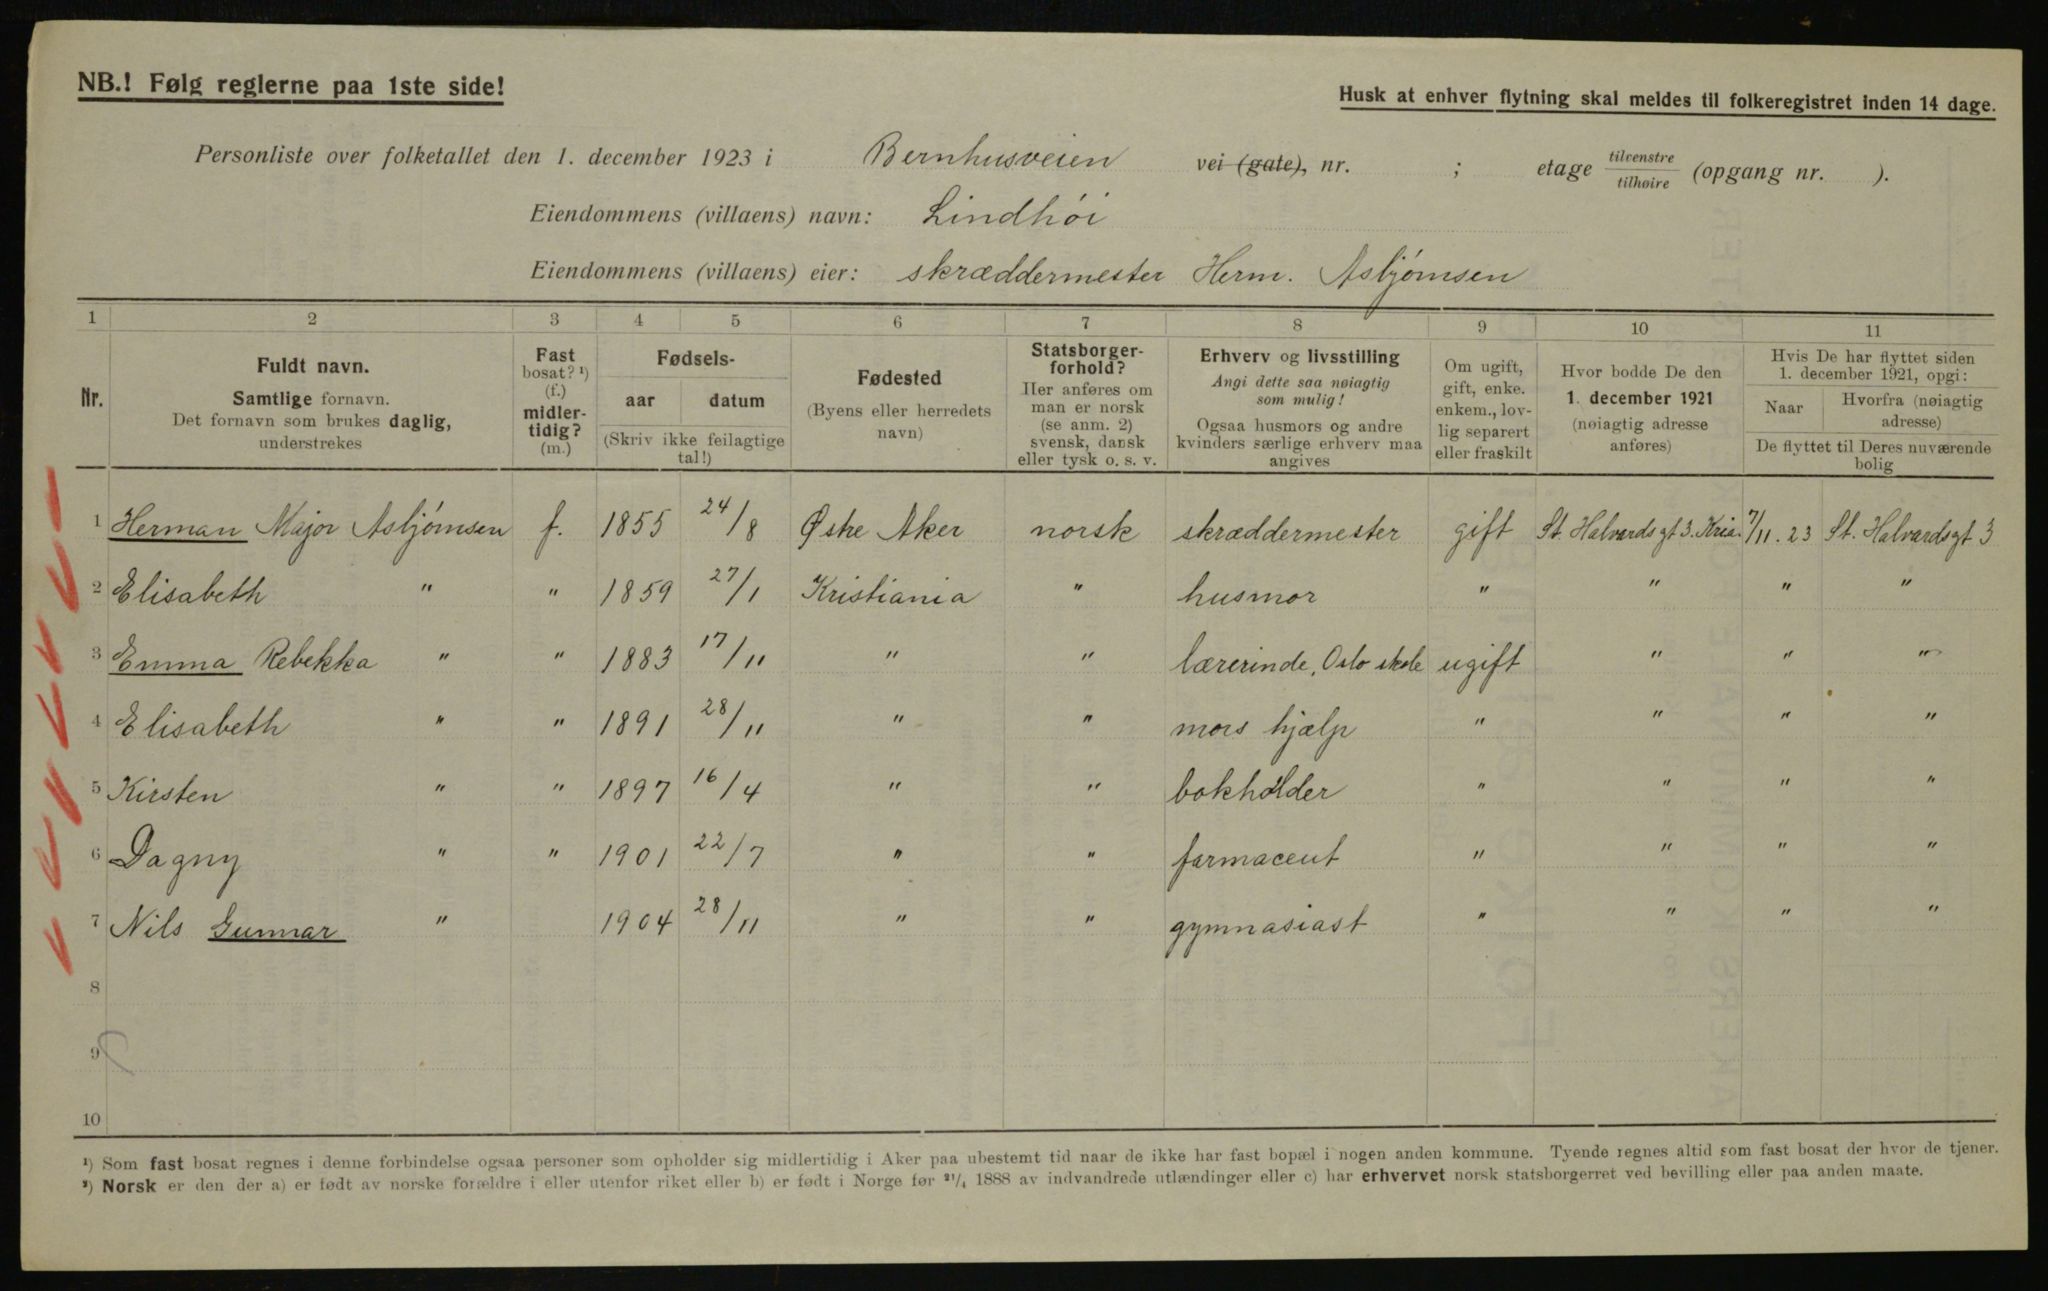 NB.! Følg reglerne paa 1ste side!
Husk at enhver flytning skal meldes til folkeregistret inden 14 dage.
Personliste over folketallet den 1. december 1923 i Bernhusveien vei (gate), nr. ; etage tilvenstre tilhøire (opgang nr. ).
Eiendommens (villaens) navn: Lindhøi
Eiendommens (villaens) eier: skræddermester Herm. Asbjørnsen
1 2 3 4 5 6 7 8 9 10 11
Nr.
Fuldt navn.
Samtlige fornavn.
Det fornavn som brukes daglig,
understrekes
Fast
bosat? ¹)
(f.)
midler-
tidig?
(m.)
Fødsels-
aar datum
(Skriv ikke feilagtige
tal!)
Fødested
(Byens eller herredets
navn)
Statsborger-
forhold?
Her anføres om
man er norsk
(se anm. 2)
svensk, dansk
eller tysk o. s. v.
Erhverv og livsstilling
Angi dette saa nøiagtig
som mulig!
Ogsaa husmors og andre
kvinders særlige erhverv maa
angives
Om ugift,
gift, enke.
enkem., lov-
lig separert
eller fraskilt
Hvor bodde De den
1. december 1921
(nøiagtig adresse
anføres)
Hvis De har flyttet siden
1. december 1921, opgi:
Naar
Hvorfra (nøiagtig
adresse)
De flyttet til Deres nuværende
bolig
1 Herman Major Asbjørnsen f. 1855 24/8 Østre Aker norsk skræddermester gift St. Halvardsgt 3. Kria. 7/11. 23 St. Halvardsgt 3
2 Elisabeth " " 1859 27/1 Kristiania " husmor " " " "
3 Emma Rebekka " " 1883 17/11 " " lærerinde, Oslo skole ugift " " "
4 Elisabeth " " 1891 28/11 " " mors hjælp " " " "
5 Kirsten " " 1897 16/4 " " bokholder " " " "
6 Dagny " " 1901 22/7 " " farmaceut " " " "
7 Nils Gunnar " 1904 28/11 " " gymnasiast " " " "
8
9
10
¹) Som fast bosat regnes i denne forbindelse ogsaa personer som opholder sig midlertidig i Aker paa ubestemt tid naar de ikke har fast bopæl i nogen anden kommune. Tyende regnes altid som fast bosat der hvor de tjener.
²) Norsk er den der a) er født av norske forældre i eller utenfor riket eller b) er født i Norge før ²¹/₄ 1888 av indvandrede utlændinger eller c) har erhvervet norsk statsborgerret ved bevilling eller paa anden maate.